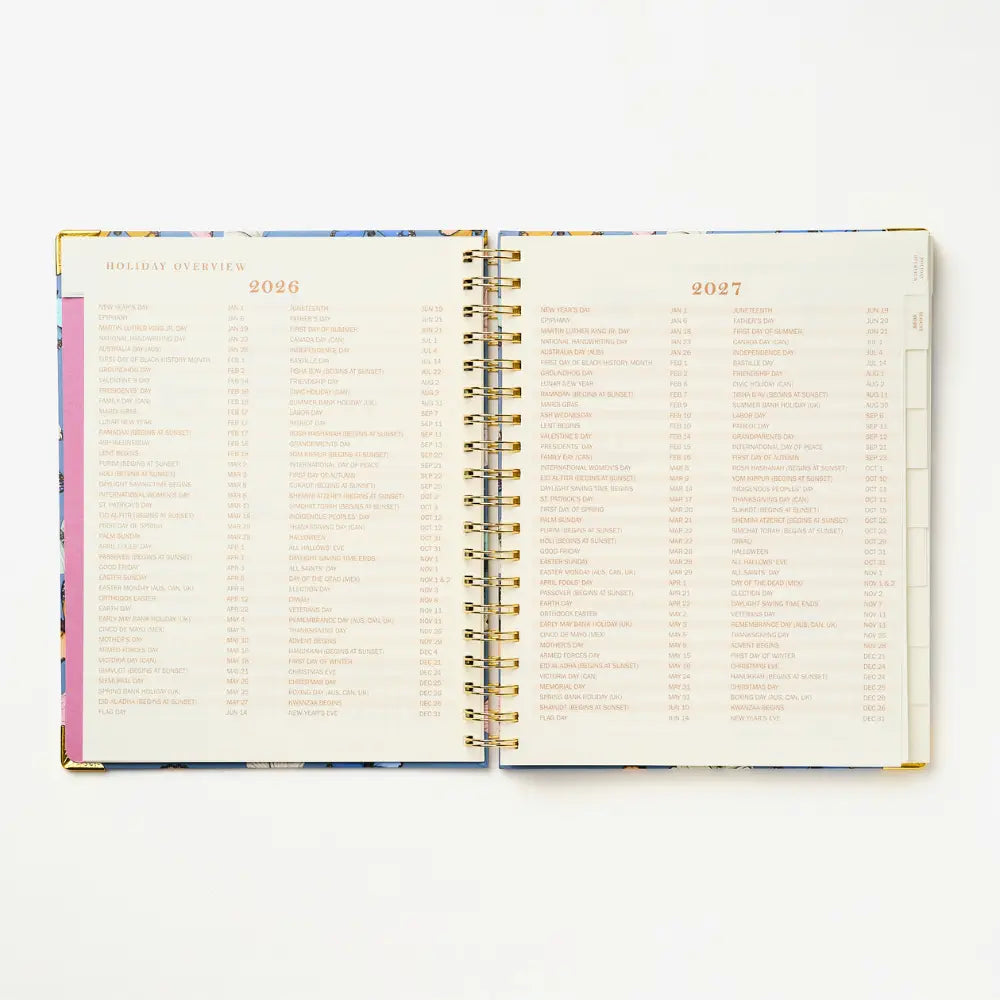 HOLIDAY OVERVIEW
2026
NEW YEAR'S DAY JAN 1
EPIPHANY JAN 6
MARTIN LUTHER KING JR. DAY JAN 19
NATIONAL HANDWRITING DAY JAN 23
AUSTRALIA DAY (AUS) JAN 26
FIRST DAY OF BLACK HISTORY MONTH FEB 1
GROUNDHOG DAY FEB 2
VALENTINE'S DAY FEB 14
PRESIDENTS' DAY FEB 16
FAMILY DAY (CAN) FEB 16
MARDI GRAS FEB 17
LUNAR NEW YEAR FEB 17
RAMADAN (BEGINS AT SUNSET) FEB 17
ASH WEDNESDAY FEB 18
LENT BEGINS FEB 18
PURIM (BEGINS AT SUNSET) MAR 2
HOLI (BEGINS AT SUNSET) MAR 3
DAYLIGHT SAVING TIME BEGINS MAR 8
INTERNATIONAL WOMEN'S DAY MAR 8
ST. PATRICK'S DAY MAR 17
EID AL-FITR (BEGINS AT SUNSET) MAR 19
FIRST DAY OF SPRING MAR 20
PALM SUNDAY MAR 29
APRIL FOOLS' DAY APR 1
PASSOVER (BEGINS AT SUNSET) APR 1
GOOD FRIDAY APR 3
EASTER SUNDAY APR 5
EASTER MONDAY (AUS, CAN, UK) APR 6
ORTHODOX EASTER APR 12
EARTH DAY APR 22
EARLY MAY BANK HOLIDAY (UK) MAY 4
CINCO DE MAYO (MEX) MAY 5
MOTHER'S DAY MAY 10
ARMED FORCES DAY MAY 16
VICTORIA DAY (CAN) MAY 18
SHAVUOT (BEGINS AT SUNSET) MAY 21
MEMORIAL DAY MAY 25
SPRING BANK HOLIDAY (UK) MAY 25
EID AL-ADHA (BEGINS AT SUNSET) MAY 27
FLAG DAY JUN 14
JUNETEENTH JUN 19
FATHER'S DAY JUN 21
FIRST DAY OF SUMMER JUN 21
CANADA DAY (CAN) JUL 1
INDEPENDENCE DAY JUL 4
BASTILLE DAY JUL 14
TISHA B'AV (BEGINS AT SUNSET) JUL 22
FRIENDSHIP DAY AUG 2
CIVIC HOLIDAY (CAN) AUG 3
SUMMER BANK HOLIDAY (UK) AUG 31
LABOR DAY SEP 7
PATRIOT DAY SEP 11
ROSH HASHANAH (BEGINS AT SUNSET) SEP 11
GRANDPARENTS' DAY SEP 13
YOM KIPPUR (BEGINS AT SUNSET) SEP 20
INTERNATIONAL DAY OF PEACE SEP 21
FIRST DAY OF AUTUMN SEP 22
SUKKOT (BEGINS AT SUNSET) SEP 25
SHEMINI ATZERET (BEGINS AT SUNSET) OCT 2
SIMCHAT TORAH (BEGINS AT SUNSET) OCT 3
INDIGENOUS PEOPLES' DAY OCT 12
THANKSGIVING DAY (CAN) OCT 12
HALLOWEEN OCT 31
ALL HALLOWS' EVE OCT 31
DAYLIGHT SAVING TIME ENDS NOV 1
ALL SAINTS' DAY NOV 1
DAY OF THE DEAD (MEX) NOV 1 & 2
ELECTION DAY NOV 3
DIWALI NOV 8
VETERANS DAY NOV 11
REMEMBRANCE DAY (AUS, CAN, UK) NOV 11
THANKSGIVING DAY NOV 26
ADVENT BEGINS NOV 29
HANUKKAH (BEGINS AT SUNSET) DEC 4
FIRST DAY OF WINTER DEC 21
CHRISTMAS EVE DEC 24
CHRISTMAS DAY DEC 25
BOXING DAY (AUS, CAN, UK) DEC 26
KWANZAA BEGINS DEC 26
NEW YEAR'S EVE DEC 31
2027
NEW YEAR'S DAY JAN 1
EPIPHANY JAN 6
MARTIN LUTHER KING JR. DAY JAN 18
NATIONAL HANDWRITING DAY JAN 23
AUSTRALIA DAY (AUS) JAN 26
FIRST DAY OF BLACK HISTORY MONTH FEB 1
GROUNDHOG DAY FEB 2
LUNAR NEW YEAR FEB 6
RAMADAN (BEGINS AT SUNSET) FEB 7
MARDI GRAS FEB 9
ASH WEDNESDAY FEB 10
LENT BEGINS FEB 10
VALENTINE'S DAY FEB 14
PRESIDENTS' DAY FEB 15
FAMILY DAY (CAN) FEB 15
INTERNATIONAL WOMEN'S DAY MAR 8
EID AL-FITR (BEGINS AT SUNSET) MAR 9
DAYLIGHT SAVING TIME BEGINS MAR 14
ST. PATRICK'S DAY MAR 17
FIRST DAY OF SPRING MAR 20
PALM SUNDAY MAR 21
PURIM (BEGINS AT SUNSET) MAR 22
HOLI (BEGINS AT SUNSET) MAR 22
GOOD FRIDAY MAR 26
EASTER SUNDAY MAR 28
EASTER MONDAY (AUS, CAN, UK) MAR 29
APRIL FOOLS' DAY APR 1
PASSOVER (BEGINS AT SUNSET) APR 21
EARTH DAY APR 22
ORTHODOX EASTER MAY 2
EARLY MAY BANK HOLIDAY (UK) MAY 3
CINCO DE MAYO (MEX) MAY 5
MOTHER'S DAY MAY 9
ARMED FORCES DAY MAY 15
EID AL-ADHA (BEGINS AT SUNSET) MAY 16
VICTORIA DAY (CAN) MAY 24
MEMORIAL DAY MAY 31
SPRING BANK HOLIDAY (UK) MAY 31
SHAVUOT (BEGINS AT SUNSET) JUN 10
FLAG DAY JUN 14
JUNETEENTH JUN 19
FATHER'S DAY JUN 20
FIRST DAY OF SUMMER JUN 21
CANADA DAY (CAN) JUL 1
INDEPENDENCE DAY JUL 4
BASTILLE DAY JUL 14
FRIENDSHIP DAY AUG 1
CIVIC HOLIDAY (CAN) AUG 2
TISHA B'AV (BEGINS AT SUNSET) AUG 11
SUMMER BANK HOLIDAY (UK) AUG 30
LABOR DAY SEP 6
PATRIOT DAY SEP 11
GRANDPARENTS' DAY SEP 12
INTERNATIONAL DAY OF PEACE SEP 21
FIRST DAY OF AUTUMN SEP 23
ROSH HASHANAH (BEGINS AT SUNSET) OCT 1
YOM KIPPUR (BEGINS AT SUNSET) OCT 10
INDIGENOUS PEOPLES' DAY OCT 11
THANKSGIVING DAY (CAN) OCT 11
SUKKOT (BEGINS AT SUNSET) OCT 15
SHEMINI ATZERET (BEGINS AT SUNSET) OCT 22
SIMCHAT TORAH (BEGINS AT SUNSET) OCT 23
DIWALI OCT 29
HALLOWEEN OCT 31
ALL HALLOWS' EVE OCT 31
ALL SAINTS' DAY NOV 1
DAY OF THE DEAD (MEX) NOV 1 & 2
ELECTION DAY NOV 2
DAYLIGHT SAVING TIME ENDS NOV 7
VETERANS DAY NOV 11
REMEMBRANCE DAY (AUS, CAN, UK) NOV 11
THANKSGIVING DAY NOV 25
ADVENT BEGINS NOV 28
FIRST DAY OF WINTER DEC 21
CHRISTMAS EVE DEC 24
HANUKKAH (BEGINS AT SUNSET) DEC 24
CHRISTMAS DAY DEC 25
BOXING DAY (AUS, CAN, UK) DEC 26
KWANZAA BEGINS DEC 26
NEW YEAR'S EVE DEC 31